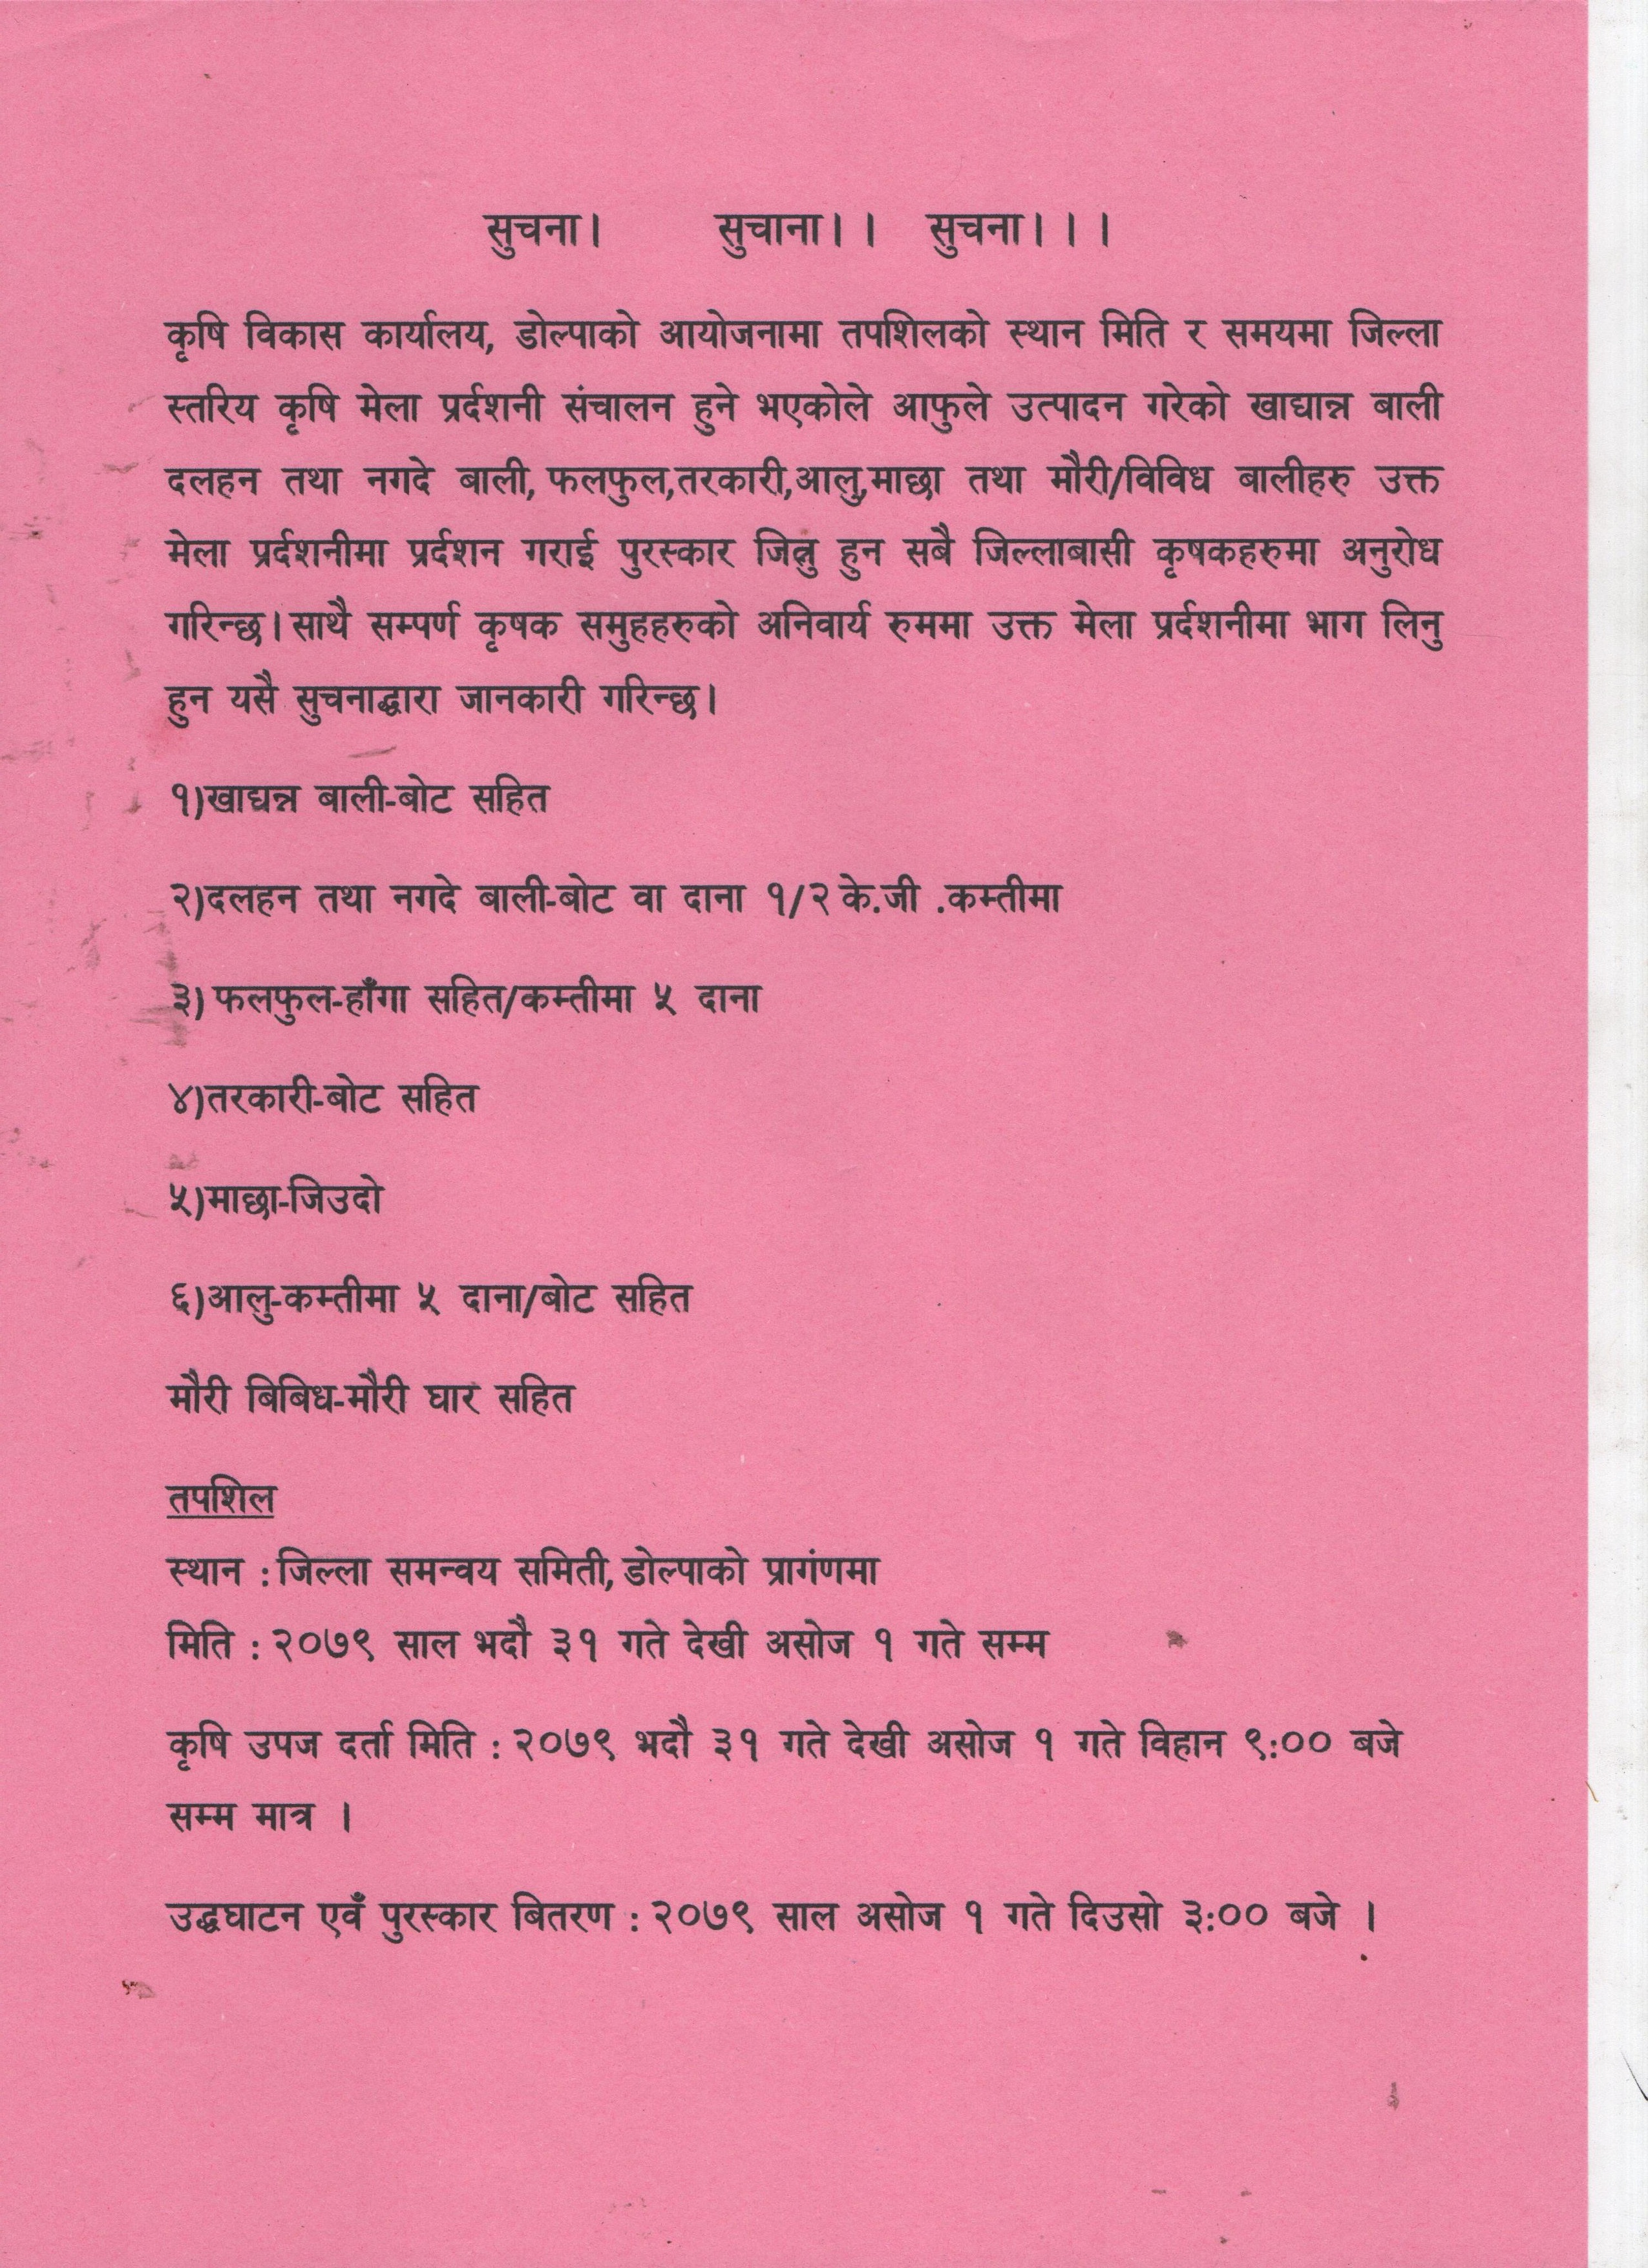 सुचना। सुचाना।। सुचना।।।
कृषि विकास कार्यालय, डोल्पाको आयोजनामा तपशिलको स्थान मिति र समयमा जिल्ला
स्तरिय कृषि मेला प्रर्दशनी संचालन हुने भएकोले आफुले उत्पादन गरेको खाद्यान्न बाली
दलहन तथा नगदे बाली, फलफुल,तरकारी,आलु,माछा तथा मौरी/विविध बालीहरु उक्त
मेला प्रर्दशनीमा प्रर्दशन गराई पुरस्कार जित्नु हुन सबै जिल्लाबासी कृषकहरुमा अनुरोध
गरिन्छ। साथै सम्पर्ण कृषक समुहहरुको अनिवार्य रुममा उक्त मेला प्रर्दशनीमा भाग लिनु
हुन यसै सुचनाद्धारा जानकारी गरिन्छ।
१)खाद्यन्न बाली-बोट सहित
२)दलहन तथा नगदे बाली-बोट वा दाना १/२ के.जी .कम्तीमा
३) फलफुल-हाँगा सहित/कम्तीमा ५ दाना
४)तरकारी-बोट सहित
५)माछा-जिउदो
६)आलु-कम्तीमा ५ दाना/बोट सहित
मौरी बिबिध-मौरी घार सहित
तपशिल
स्थान : जिल्ला समन्वय समिती, डोल्पाको प्रागंणमा
मिति : २०७९ साल भदौ ३१ गते देखी असोज १ गते सम्म
कृषि उपज दर्ता मिति : २०७९ भदौ ३१ गते देखी असोज १ गते विहान ९:०० बजे
सम्म मात्र ।
उद्धघाटन एवँ पुरस्कार बितरण : २०७९ साल असोज १ गते दिउसो ३:०० बजे ।